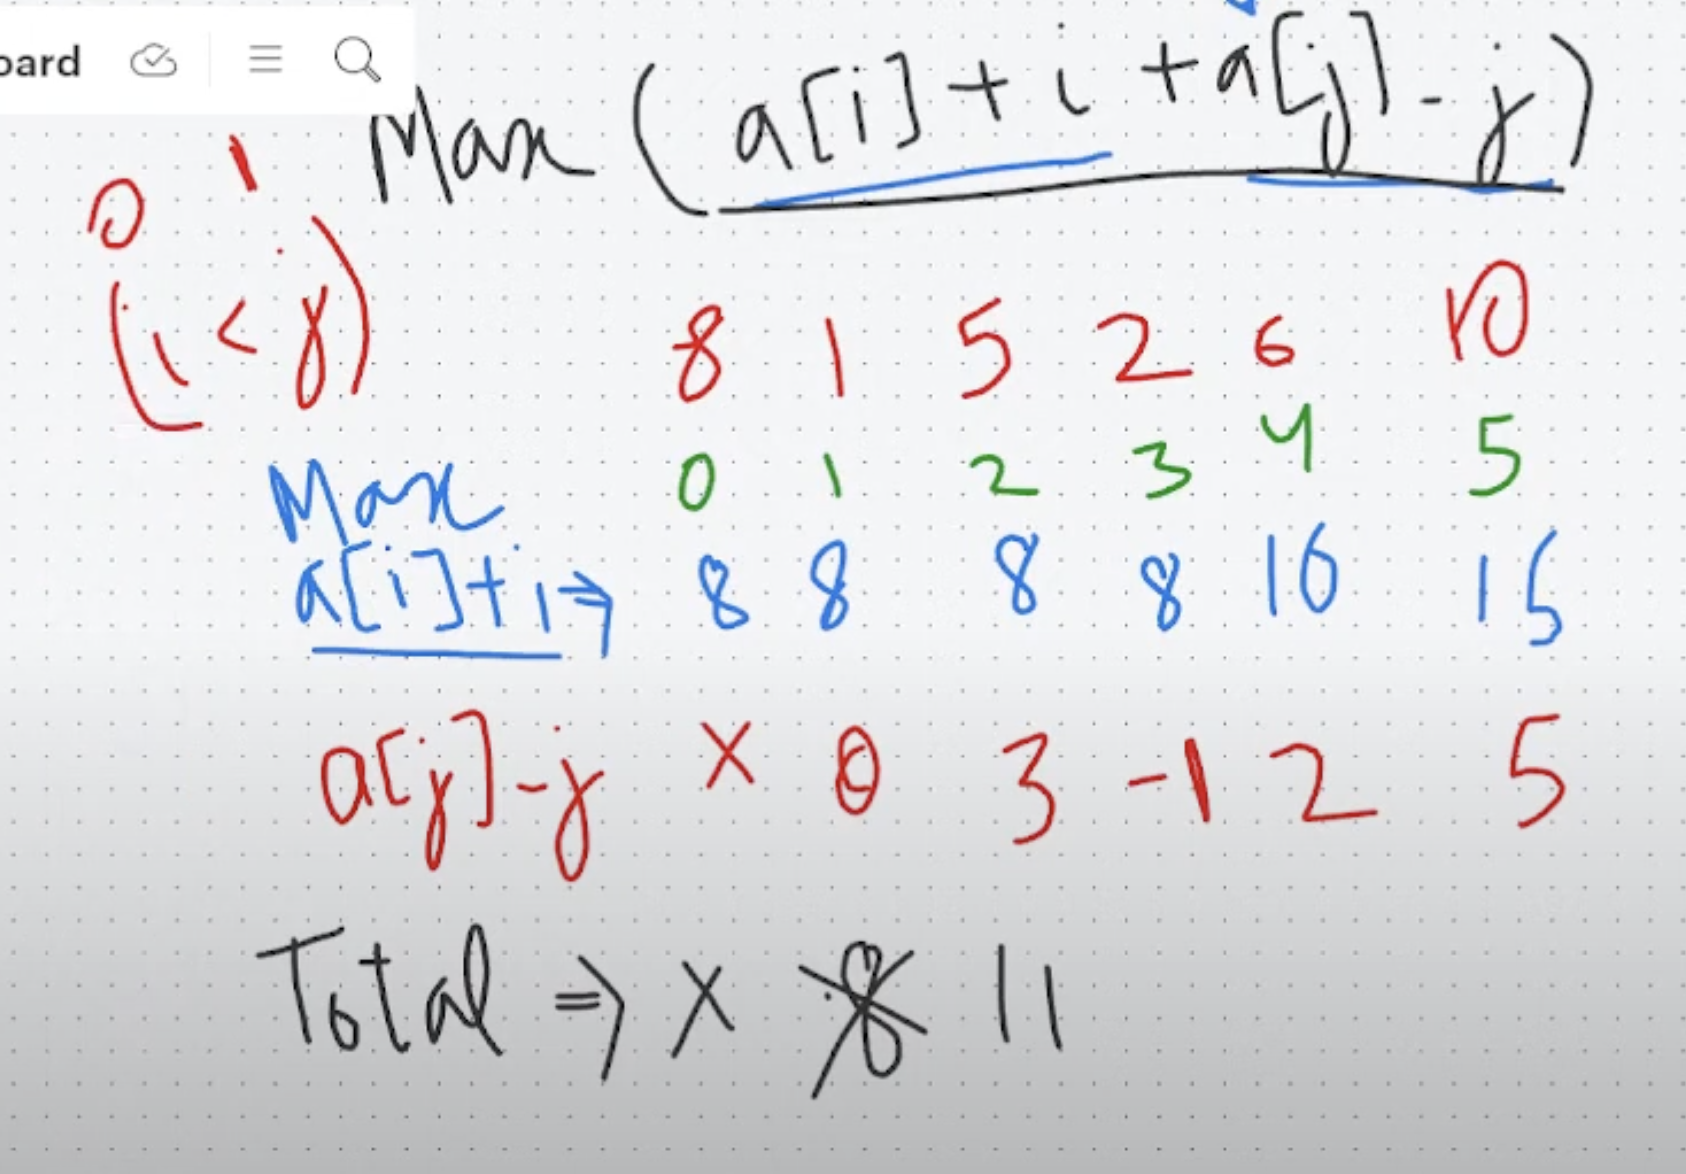 oard
Max (a[i] + i + a[j] - j)
0 1
(i < j)
8 1 5 2 6 10
0 1 2 3 4 5
Max
a[i]+i → 8 8 8 8 10 15
a[j]-j × 0 3 -1 2 5
Total ⇒ × 8 11